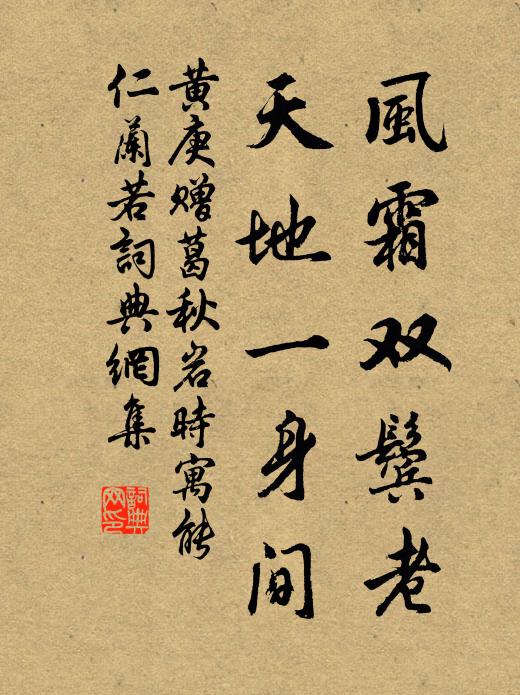 風霜双鬓老
天地一身间
黄庚赠葛秋岩時寓能
仁蘭若詞典網集
詞典网印